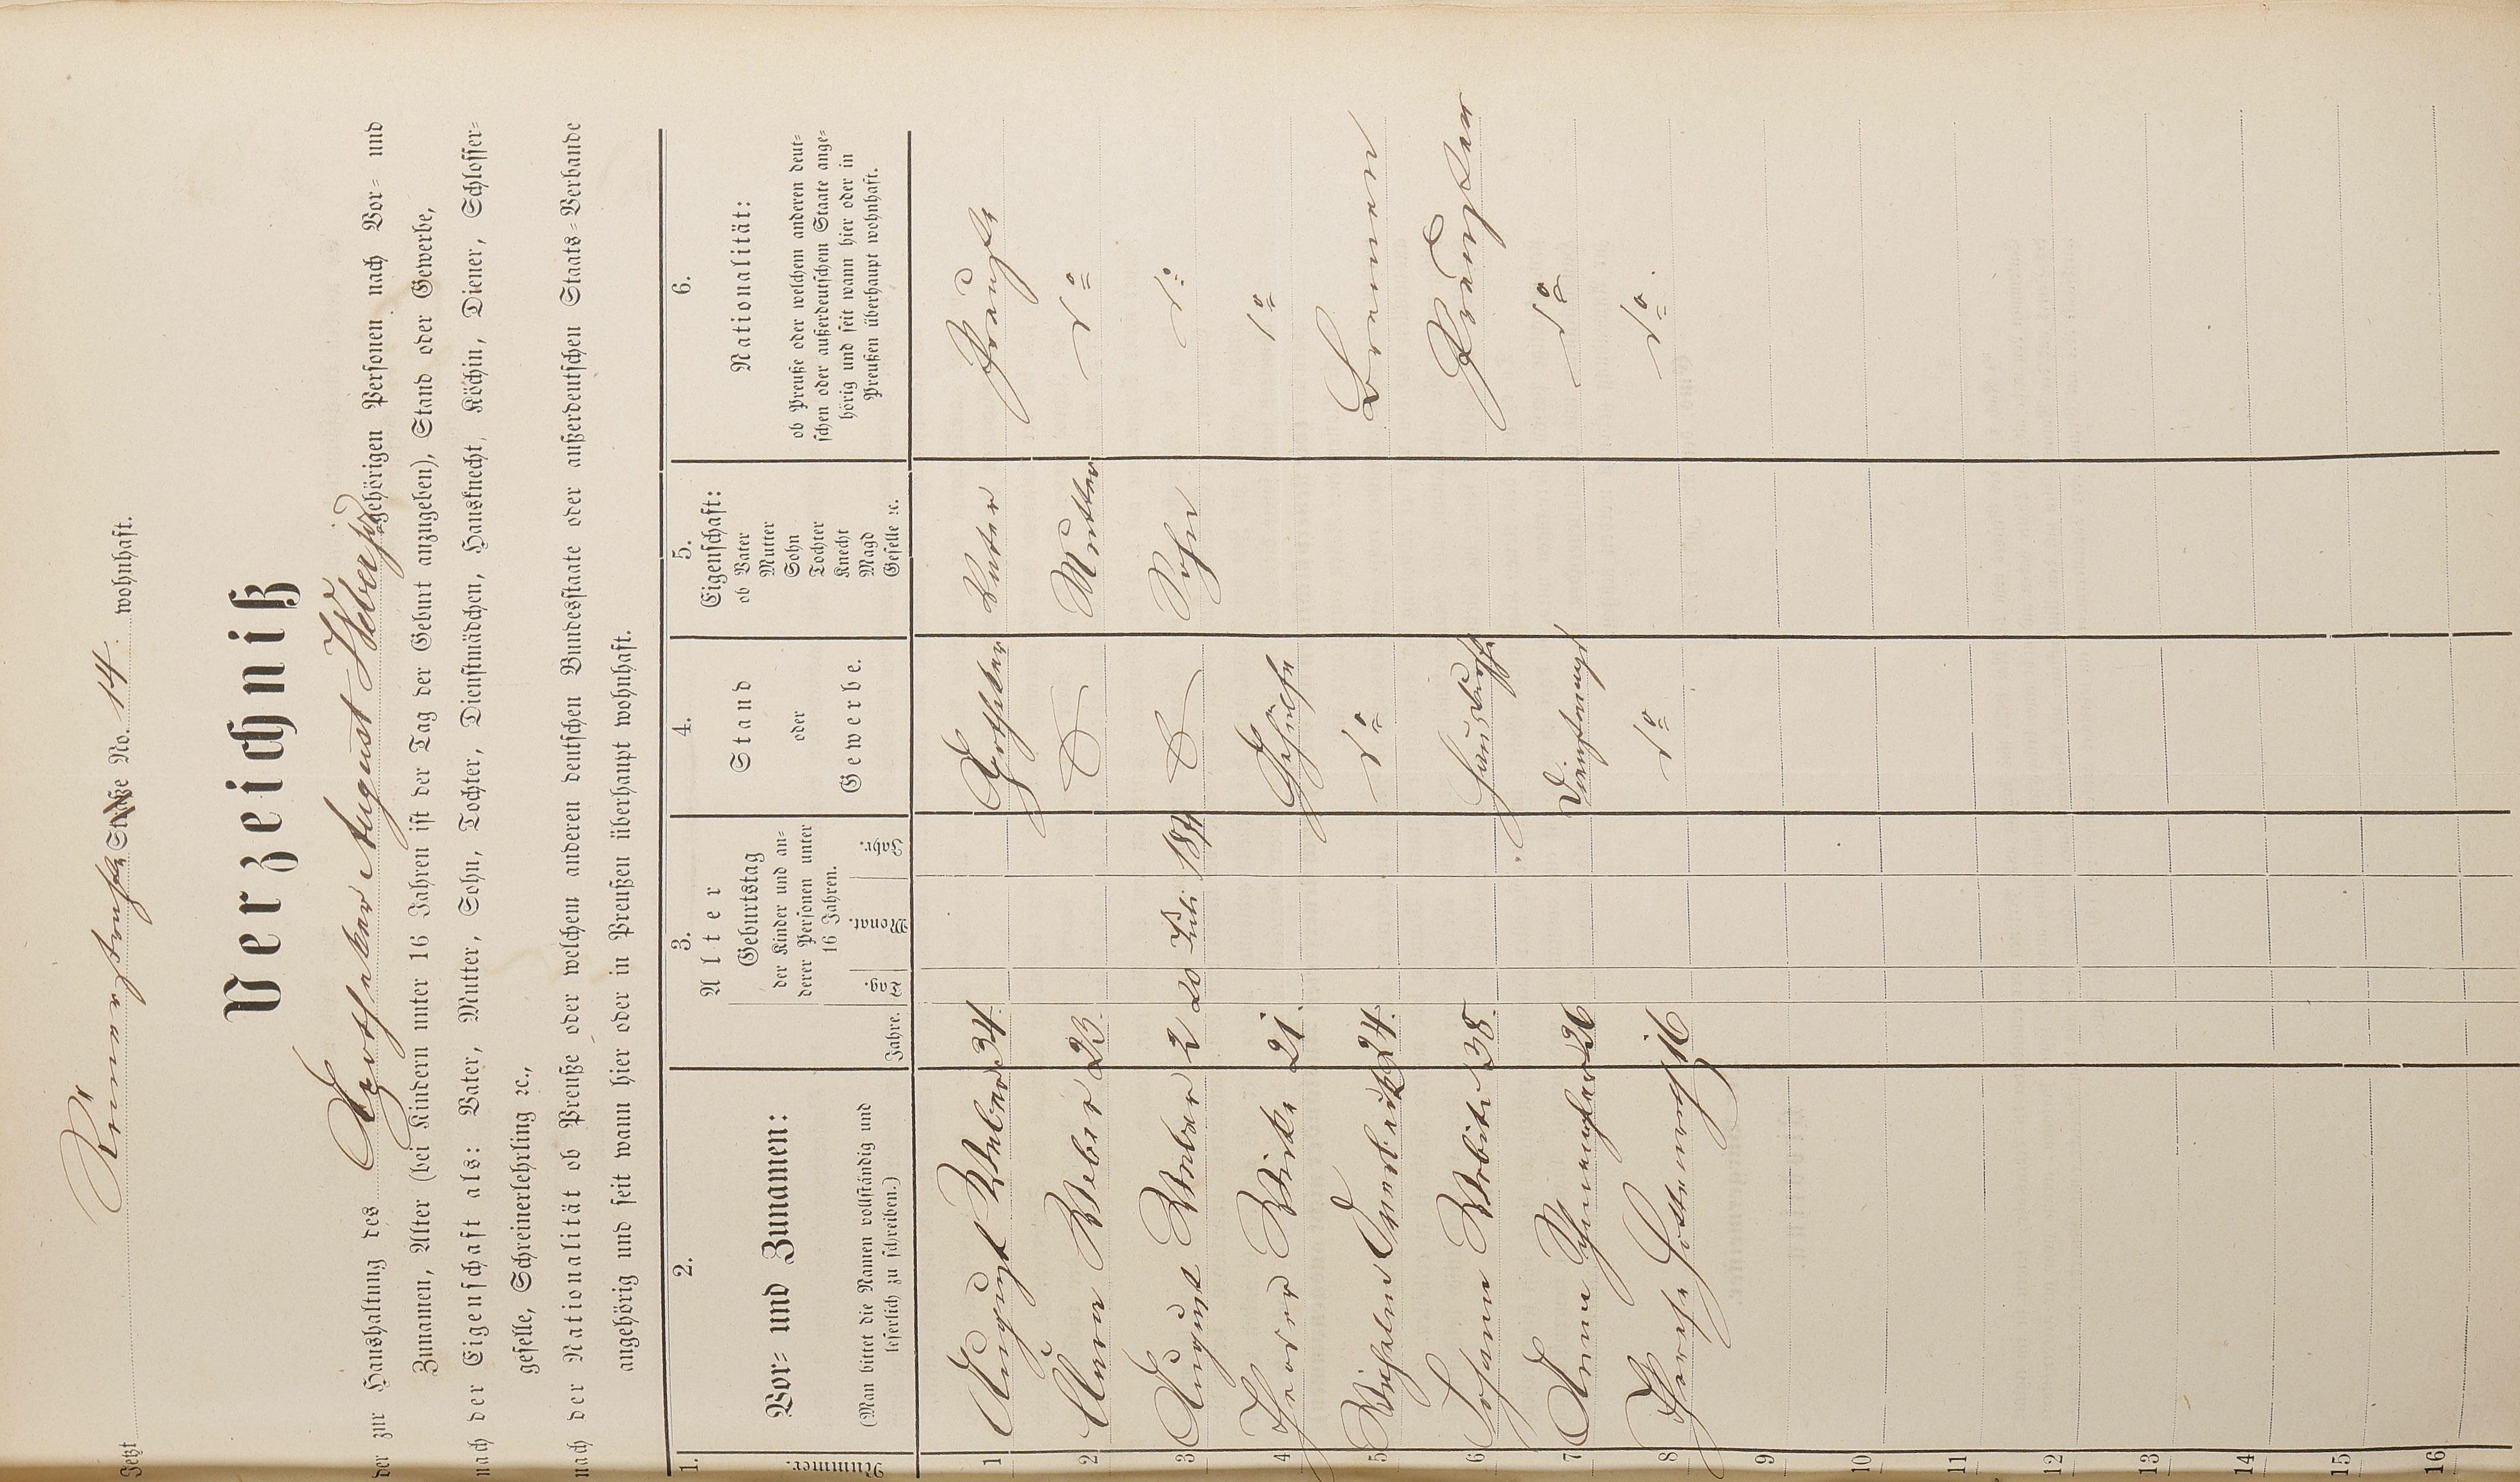 Jetzt Römerstraße Straße No. 14. wohnhaft.
Verzeichniß
der zur Haushaltung des Apotheker August Weber gehörigen Personen nach Vor- und
Zunamen, Alter (bei Kindern unter 16 Jahren ist der Tag der Geburt anzugeben), Stand oder Gewerbe,
nach der Eigenschaft als: Vater, Mutter, Sohn, Tochter, Dienstmädchen, Hausknecht, Köchin, Diener, Schlosser-
geselle, Schreinerlehrling ꝛc.,
nach der Nationalität ob Preuße oder welchem anderen deutschen Bundesstaate oder außerdeutschen Staats-Verbande
angehörig und seit wann hier oder in Preußen überhaupt wohnhaft.
1. 2. 3. 4. 5. 6.
Nummer.
Vor- und Zunamen:
(Man bittet die Namen vollständig und
leserlich zu schreiben.)
Alter
Jahre.
Geburtstag
der Kinder und an-
derer Personen unter
16 Jahren.
Tag. Monat. Jahr.
Stand
oder
Gewerbe.
Eigenschaft:
ob Vater
Mutter
Sohn
Tochter
Knecht
Magd
Geselle ꝛc.
Nationalität:
ob Preuße oder welchem anderen deut-
schen oder außerdeutschem Staate ange-
hörig und seit wann hier oder in
Preußen überhaupt wohnhaft.
1 August Weber 34. Apotheker Vater Preuße
2 Clara Weber 23. Mutter do
3 August Weber 2 20 Juli 1871 Sohn do
4 Theodor Wirtz 21. Gehülfe do
5 Wilhelm 24. do Bremen
6 Johann 38. Hausbursche Preußen
7 Anna 26 Dienstmagd do
8 Therese 16 do do
9
10
11
12
13
14
15
16